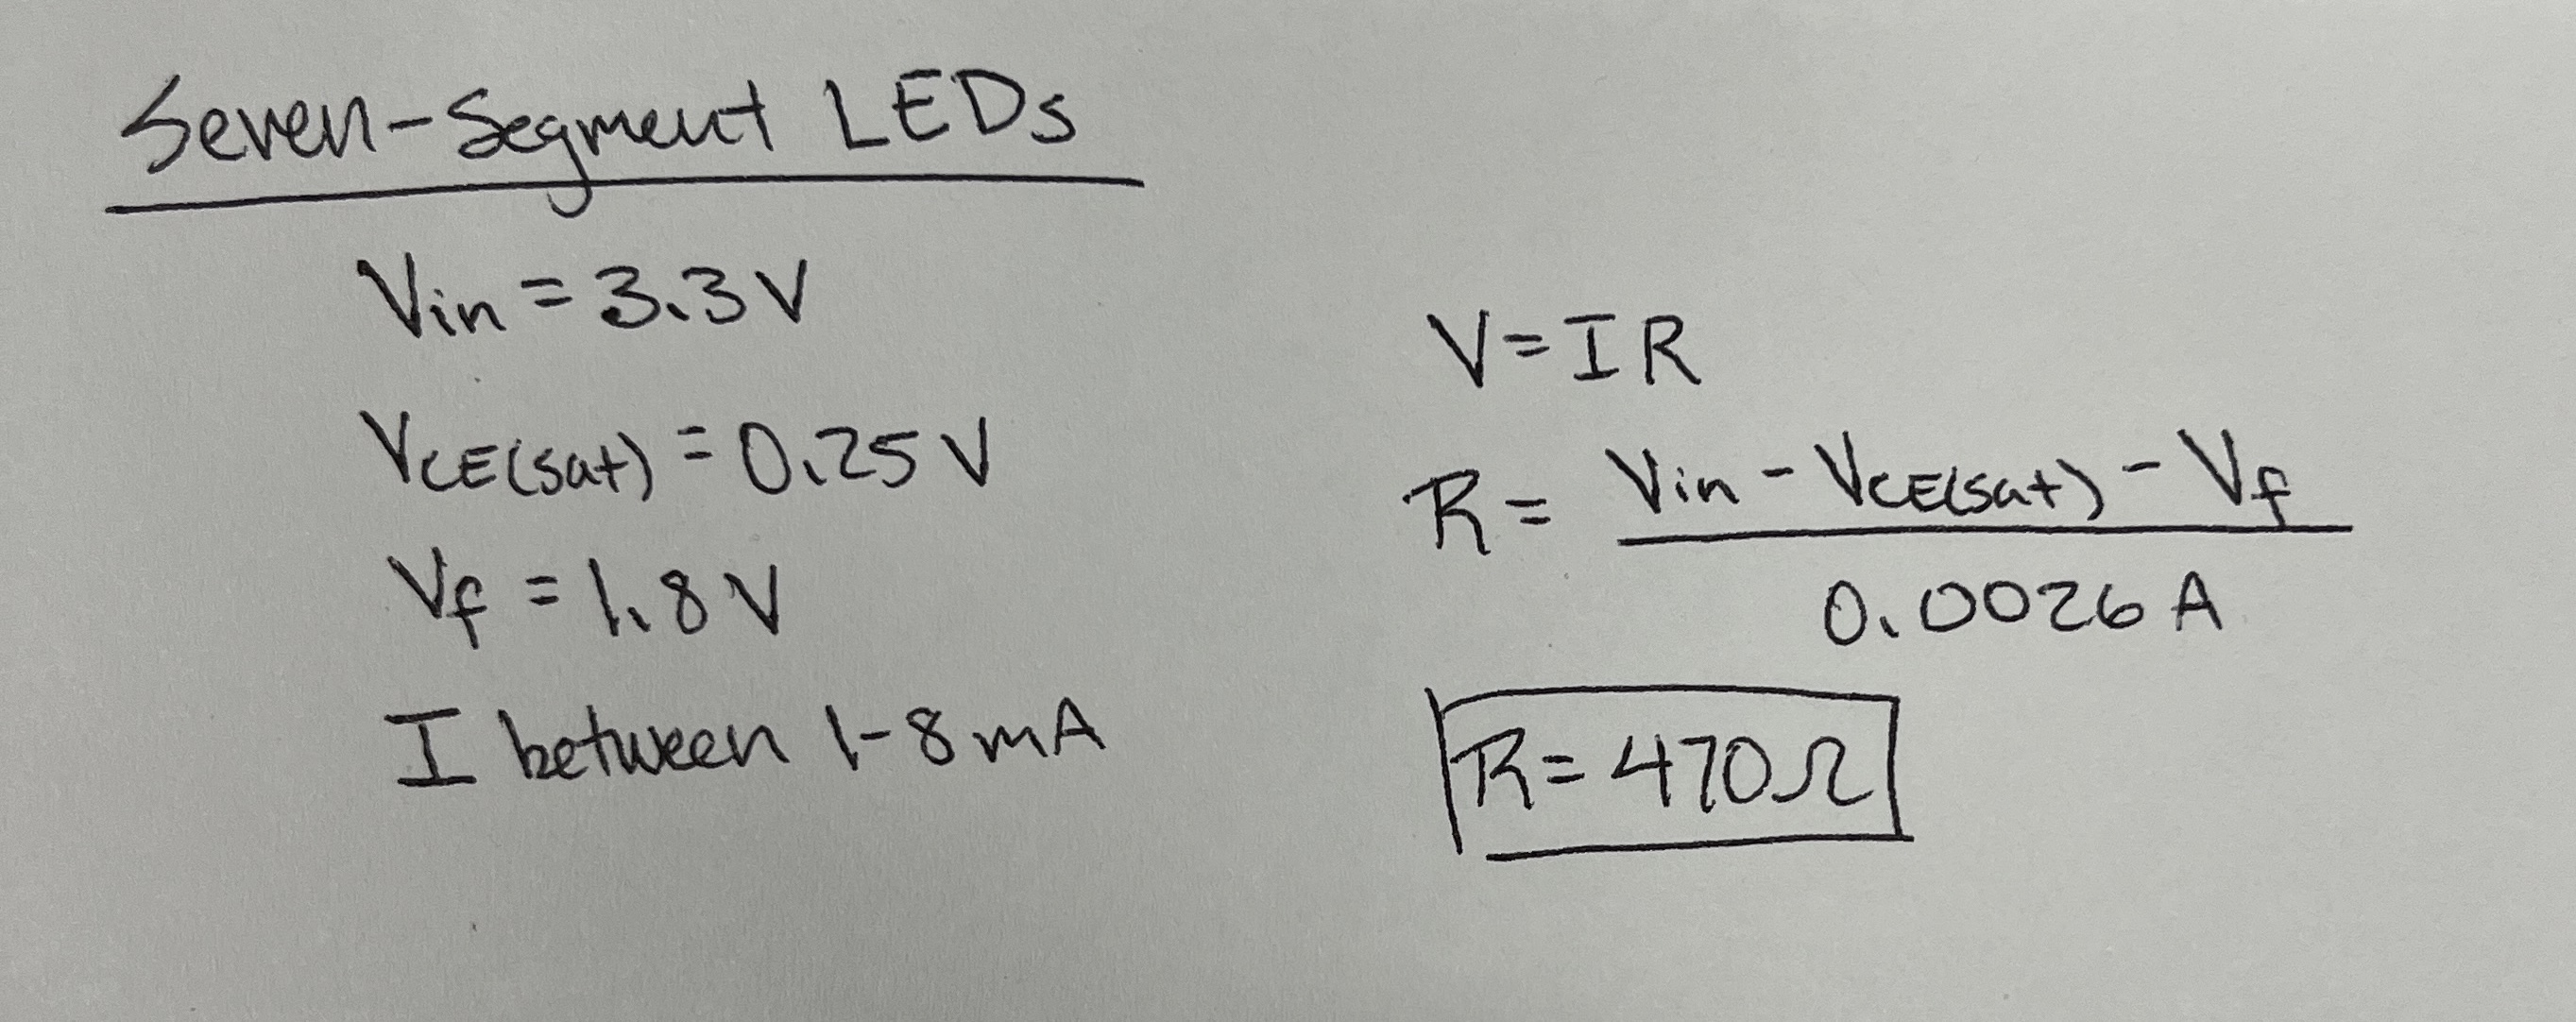 Seven-Segment LEDs
Vin = 3.3V
VCE(sat) = 0.25V
Vf = 1.8V
I between 1-8mA
V=IR
R = Vin - VCE(sat) - Vf
0.0026A
R=470Ω